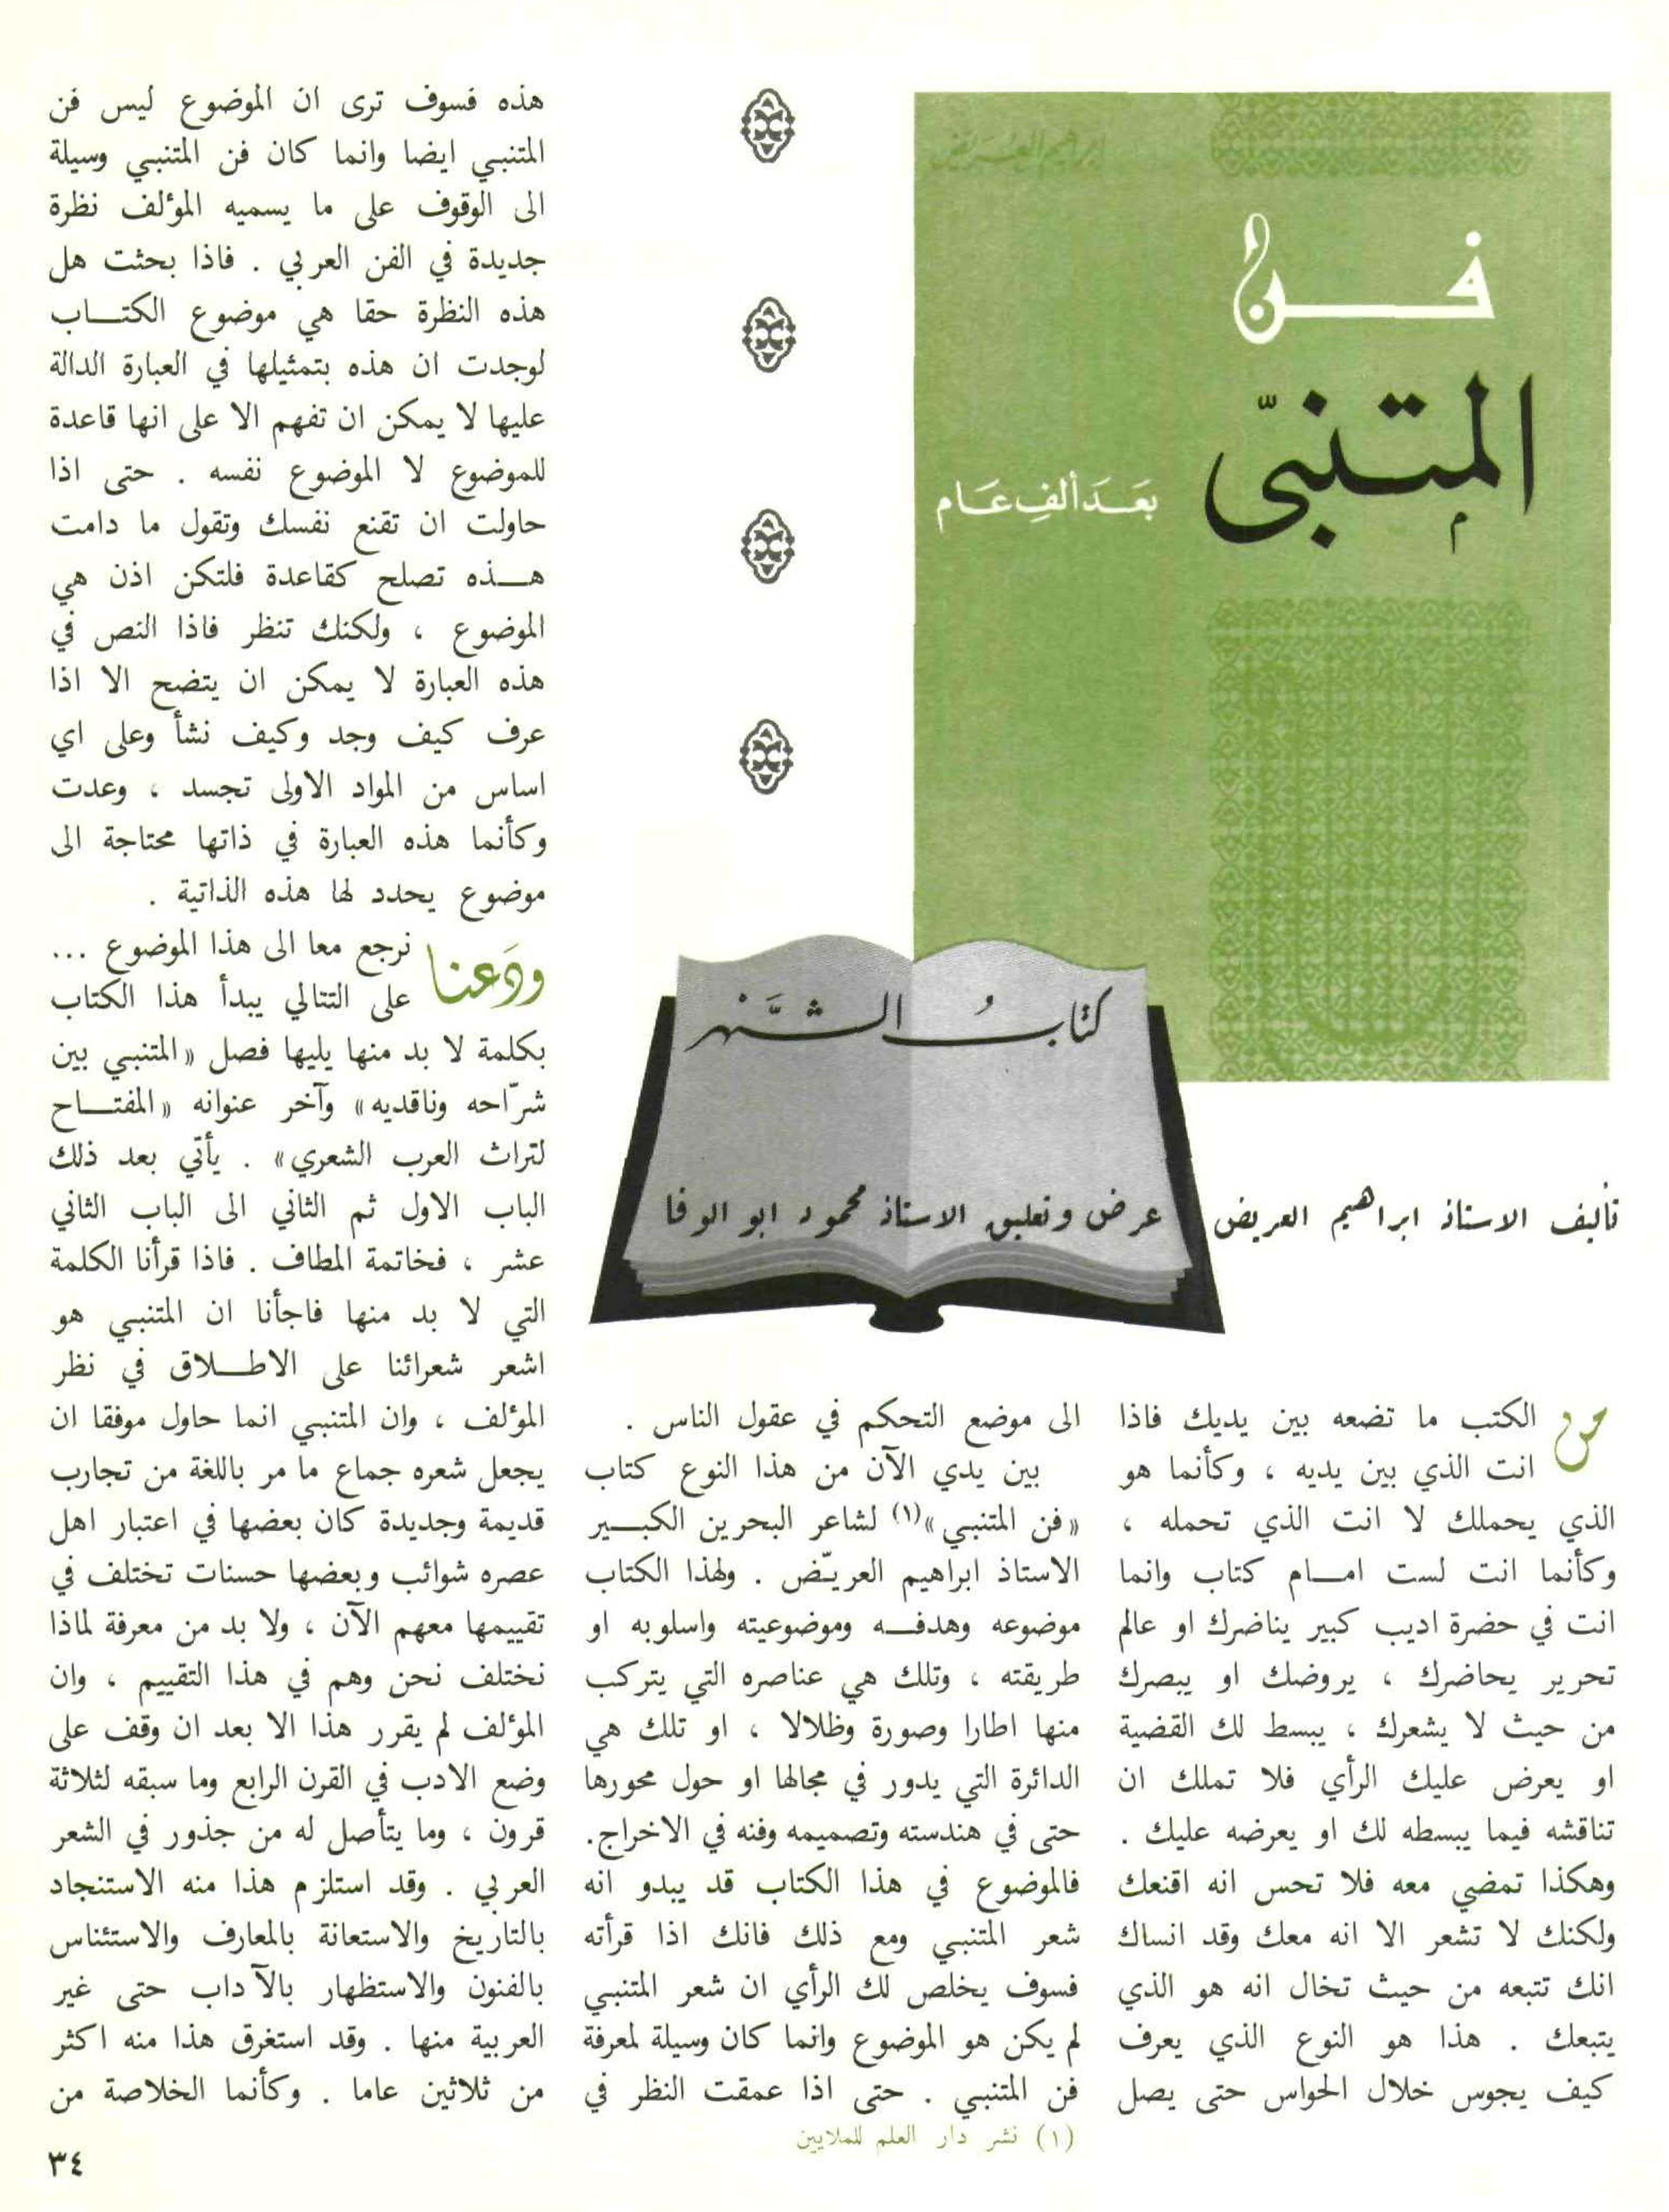 ابراهيم العريض
فن
المتنبي
بعد ألف عام
كتاب الشهر
تأليف الاستاذ ابراهيم العريض
عرض وتعليق الاستاذ محمود ابو الوفا
من الكتب ما تضعه بين يديك فاذا
انت الذي بين يديه ، وكأنما هو
الذي يحملك لا انت الذي تحمله ،
وكأنما انت لست امام كتاب وانما
انت في حضرة اديب كبير يناضرك او عالم
تحرير يحاضرك ، يروضك او يبصرك
من حيث لا يشعرك ، يبسط لك القضية
او يعرض عليك الرأي فلا تملك ان
تناقشه فيما يبسطه لك او يعرضه عليك .
وهكذا تمضي معه فلا تحس انه اقنعك
ولكنك لا تشعر الا انه معك وقد انساك
انك تتبعه من حيث تخال انه هو الذي
يتبعك . هذا هو النوع الذي يعرف
كيف يجوس خلال الحواس حتى يصل
الى موضع التحكم في عقول الناس .
بين يدي الآن من هذا النوع كتاب
«فن المتنبي»(١) لشاعر البحرين الكبير
الاستاذ ابراهيم العريّض . ولهذا الكتاب
موضوعه وهدفه وموضوعيته واسلوبه او
طريقته ، وتلك هي عناصره التي يتركب
منها اطارا وصورة وظلالا ، او تلك هي
الدائرة التي يدور في مجالها او حول محورها
حتى في هندسته وتصميمه وفنه في الاخراج.
فالموضوع في هذا الكتاب قد يبدو انه
شعر المتنبي ومع ذلك فانك اذا قرأته
فسوف يخلص لك الرأي ان شعر المتنبي
لم يكن هو الموضوع وانما كان وسيلة لمعرفة
فن المتنبي . حتى اذا عمقت النظر في
(١) نشر دار العلم للملايين
هذه فسوف ترى ان الموضوع ليس فن
المتنبي ايضا وانما كان فن المتنبي وسيلة
الى الوقوف على ما يسميه المؤلف نظرة
جديدة في الفن العربي . فاذا بحثت هل
هذه النظرة حقا هي موضوع الكتاب
لوجدت ان هذه بتمثيلها في العبارة الدالة
عليها لا يمكن ان تفهم الا على انها قاعدة
للموضوع لا الموضوع نفسه . حتى اذا
حاولت ان تقنع نفسك وتقول ما دامت
هذه تصلح كقاعدة فلتكن اذن هي
الموضوع ، ولكنك تنظر فاذا النص في
هذه العبارة لا يمكن ان يتضح الا اذا
عرف كيف وجد وكيف نشأ وعلى اي
اساس من المواد الاولى تجسد ، وعدت
وكأنما هذه العبارة في ذاتها محتاجة الى
موضوع يحدد لها هذه الذاتية .
ودعنا نرجع معا الى هذا الموضوع ...
على التتالي يبدأ هذا الكتاب
بكلمة لا بد منها يليها فصل «المتنبي بين
شرّاحه وناقديه» وآخر عنوانه «المفتاح
لتراث العرب الشعري» . يأتي بعد ذلك
الباب الاول ثم الثاني الى الباب الثاني
عشر ، فخاتمة المطاف . فاذا قرأنا الكلمة
التي لا بد منها فاجأنا ان المتنبي هو
اشعر شعرائنا على الاطلاق في نظر
المؤلف ، وان المتنبي انما حاول موفقا ان
يجعل شعره جماع ما مر باللغة من تجارب
قديمة وجديدة كان بعضها في اعتبار اهل
عصره شوائب وبعضها حسنات تختلف في
تقييمها معهم الآن ، ولا بد من معرفة لماذا
نختلف نحن وهم في هذا التقييم ، وان
المؤلف لم يقرر هذا الا بعد ان وقف على
وضع الادب في القرن الرابع وما سبقه لثلاثة
قرون ، وما يتأصل له من جذور في الشعر
العربي . وقد استلزم هذا منه الاستنجاد
بالتاريخ والاستعانة بالمعارف والاستئناس
بالفنون والاستظهار بالآداب حتى غير
العربية منها . وقد استغرق هذا منه اكثر
من ثلاثين عاما . وكأنما الخلاصة من
٣٤